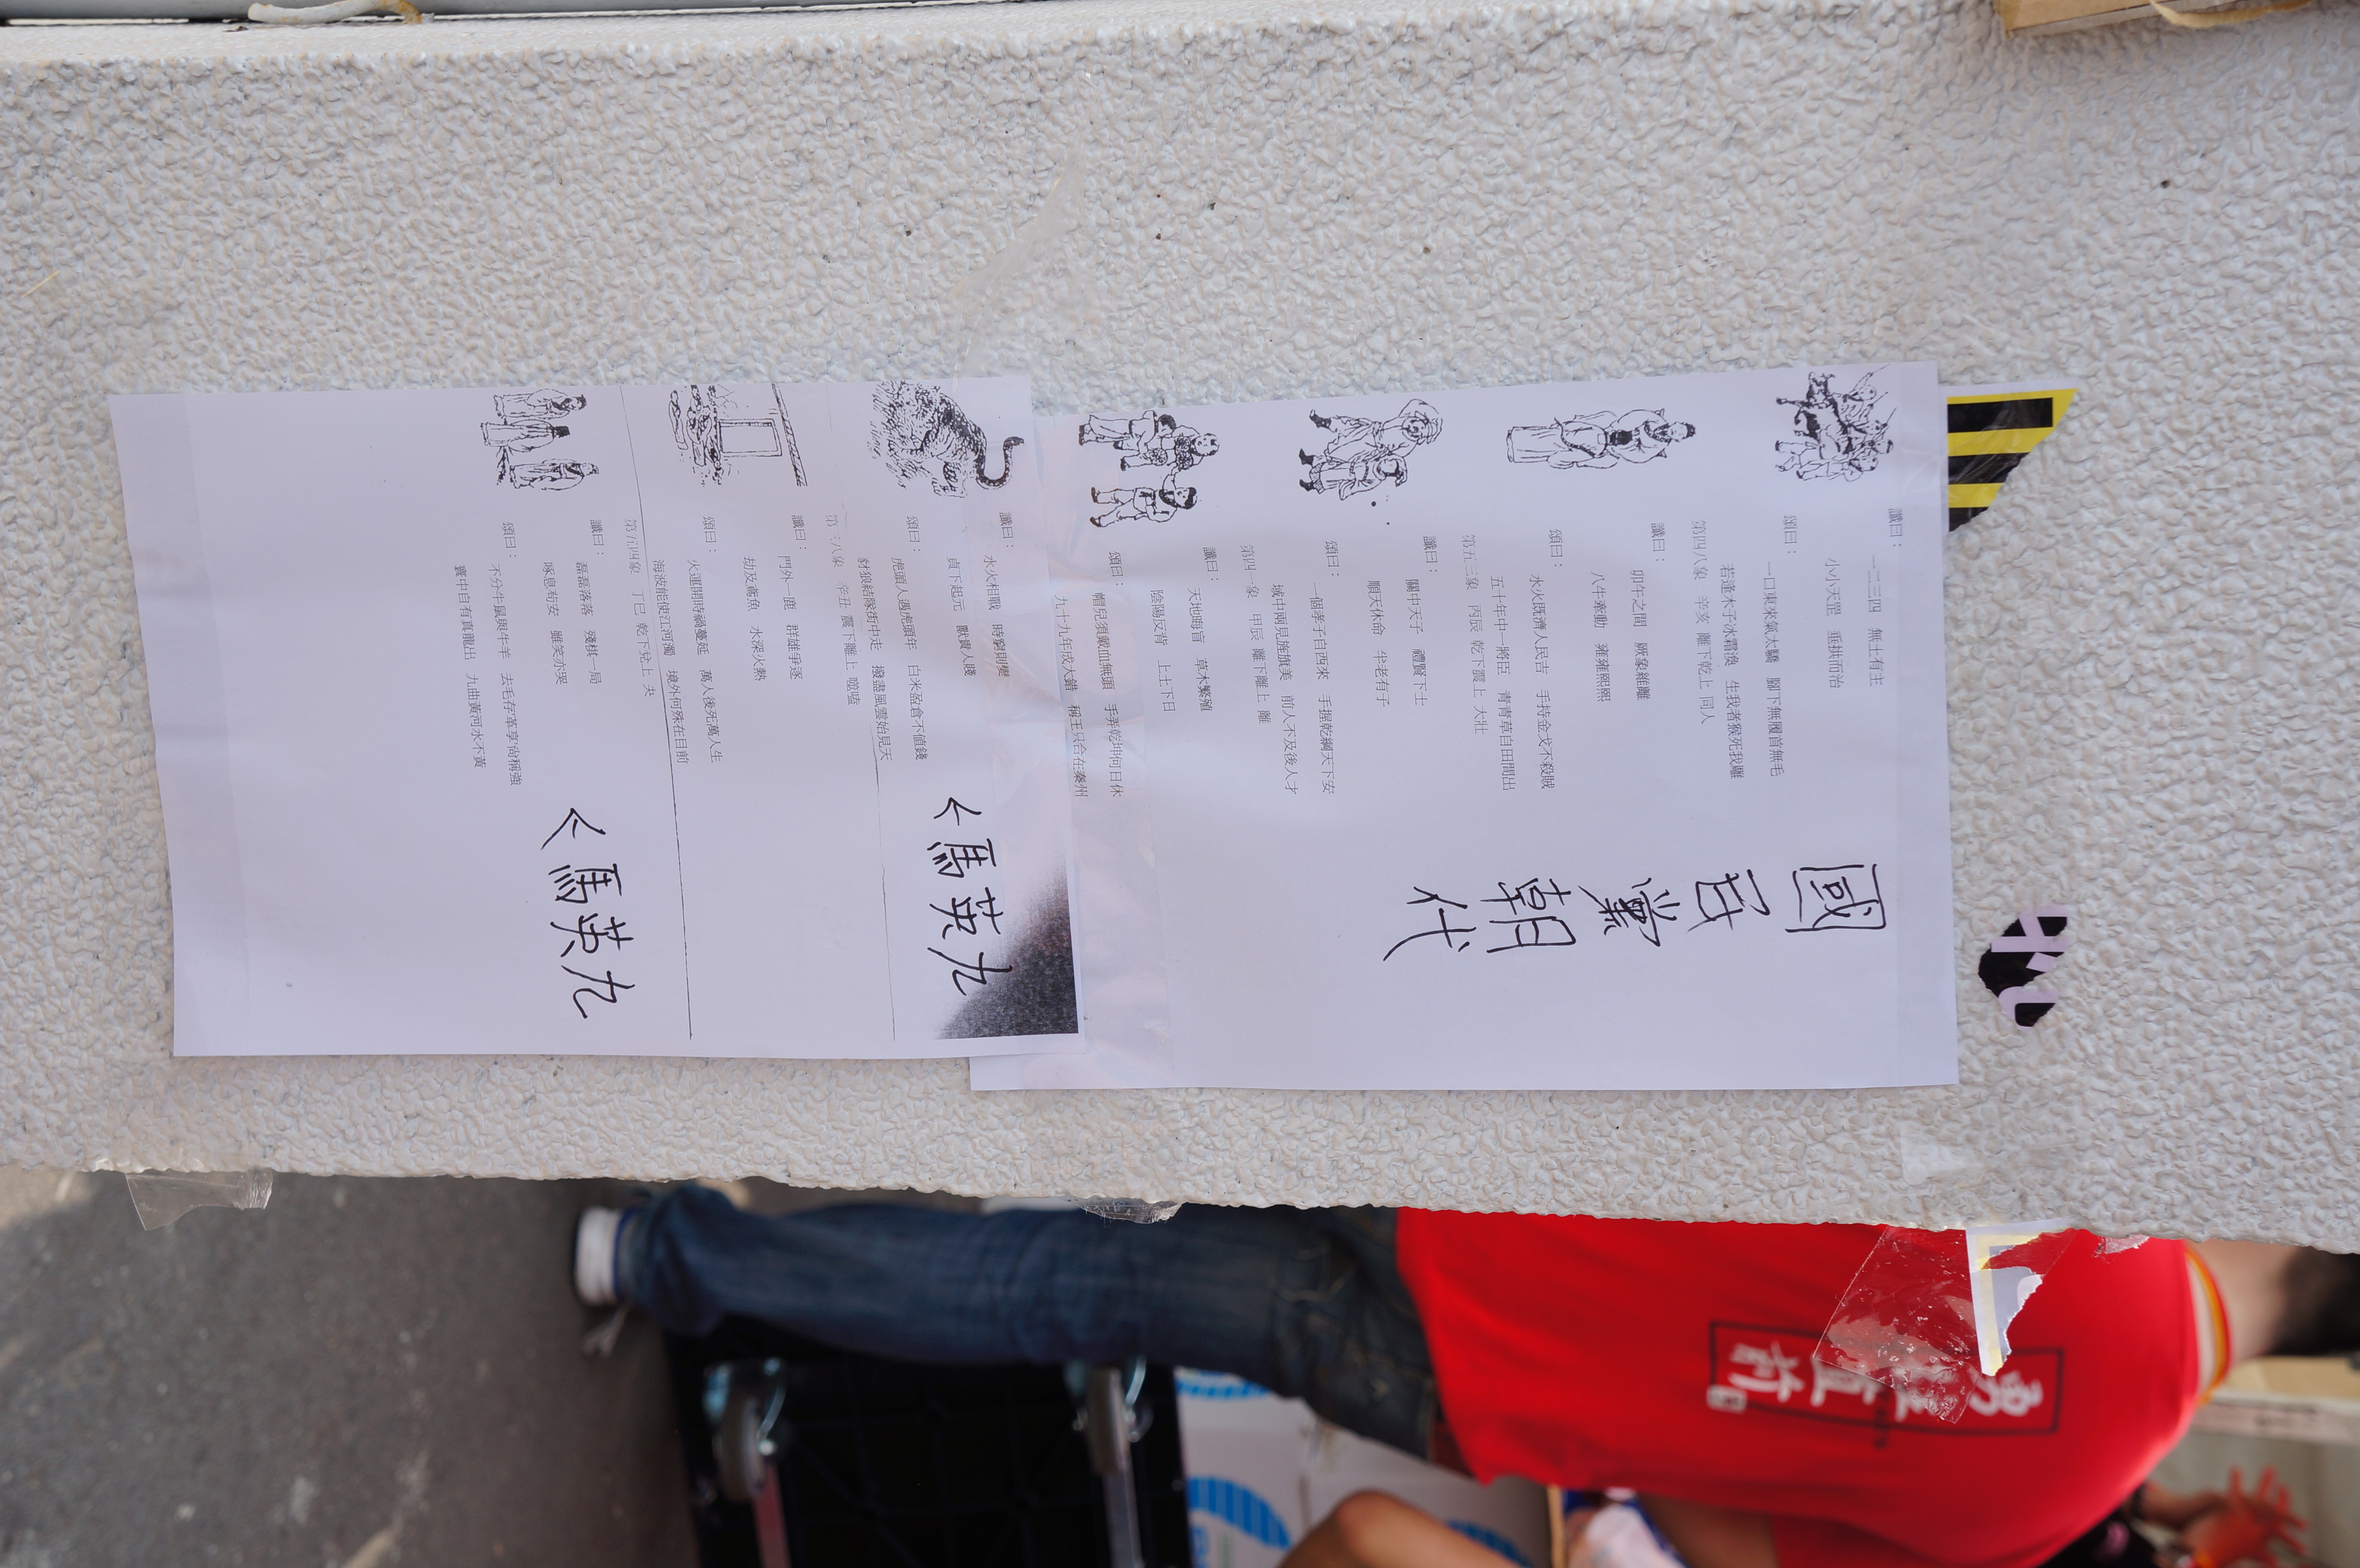 讖曰： 一二三四 無土有主
小小天罡 垂拱而治
頌曰：
一口東來氣太驕 腳下無履首無毛
若逢木子冰霜渙 生我者猴死我雕
第四八象 辛亥 離下乾上 同人
讖曰：
卯午之間 厥象維離
八牛牽動 雍雍熙熙
頌曰：
水火既濟人民吉 手持金戈不殺賊
五十年中一將臣 青青草自田間出
第五三象 丙辰 乾下震上 大壯
讖曰：
關中天子 禮賢下士
順天休命 半老有子
頌曰：
一個孝子自西來 手握乾綱天下安
域中兩見旌旗美 前人不及後人才
第四一象 甲辰 離下離上 離
讖曰：
天地晦盲 草木繁殖
陰陽反背 上土下日
頌曰：
帽兒須戴血無頭 手弄乾坤何日休
九十九年成大錯 稱王只合在秦州
國民黨朝代
讖曰：
水火相戰 時窮則變
貞下起元 獸貴人賤
頌曰：
虎頭人遇虎頭年 白米盈倉不值錢
豺狼結隊街中走 撥盡風雲始見天
<馬英九
第三八象 辛丑 震下離上 噬嗑
讖曰：
門外一鹿 群雄爭逐
劫及鳶魚 水深火熱
頌曰：
火運開時禍蔓延 萬人後死萬人生
海波能使江河濁 境外何殊在目前
第五四象 丁巳 乾下兌上 夬
讖曰：
磊磊落落 殘棋一局
啄息苟安 雖笑亦哭
頌曰：
不分牛鼠與牛羊 去毛存革享尚稱強
寰中自有真龍出 九曲黃河水不黃
<馬英九
直前